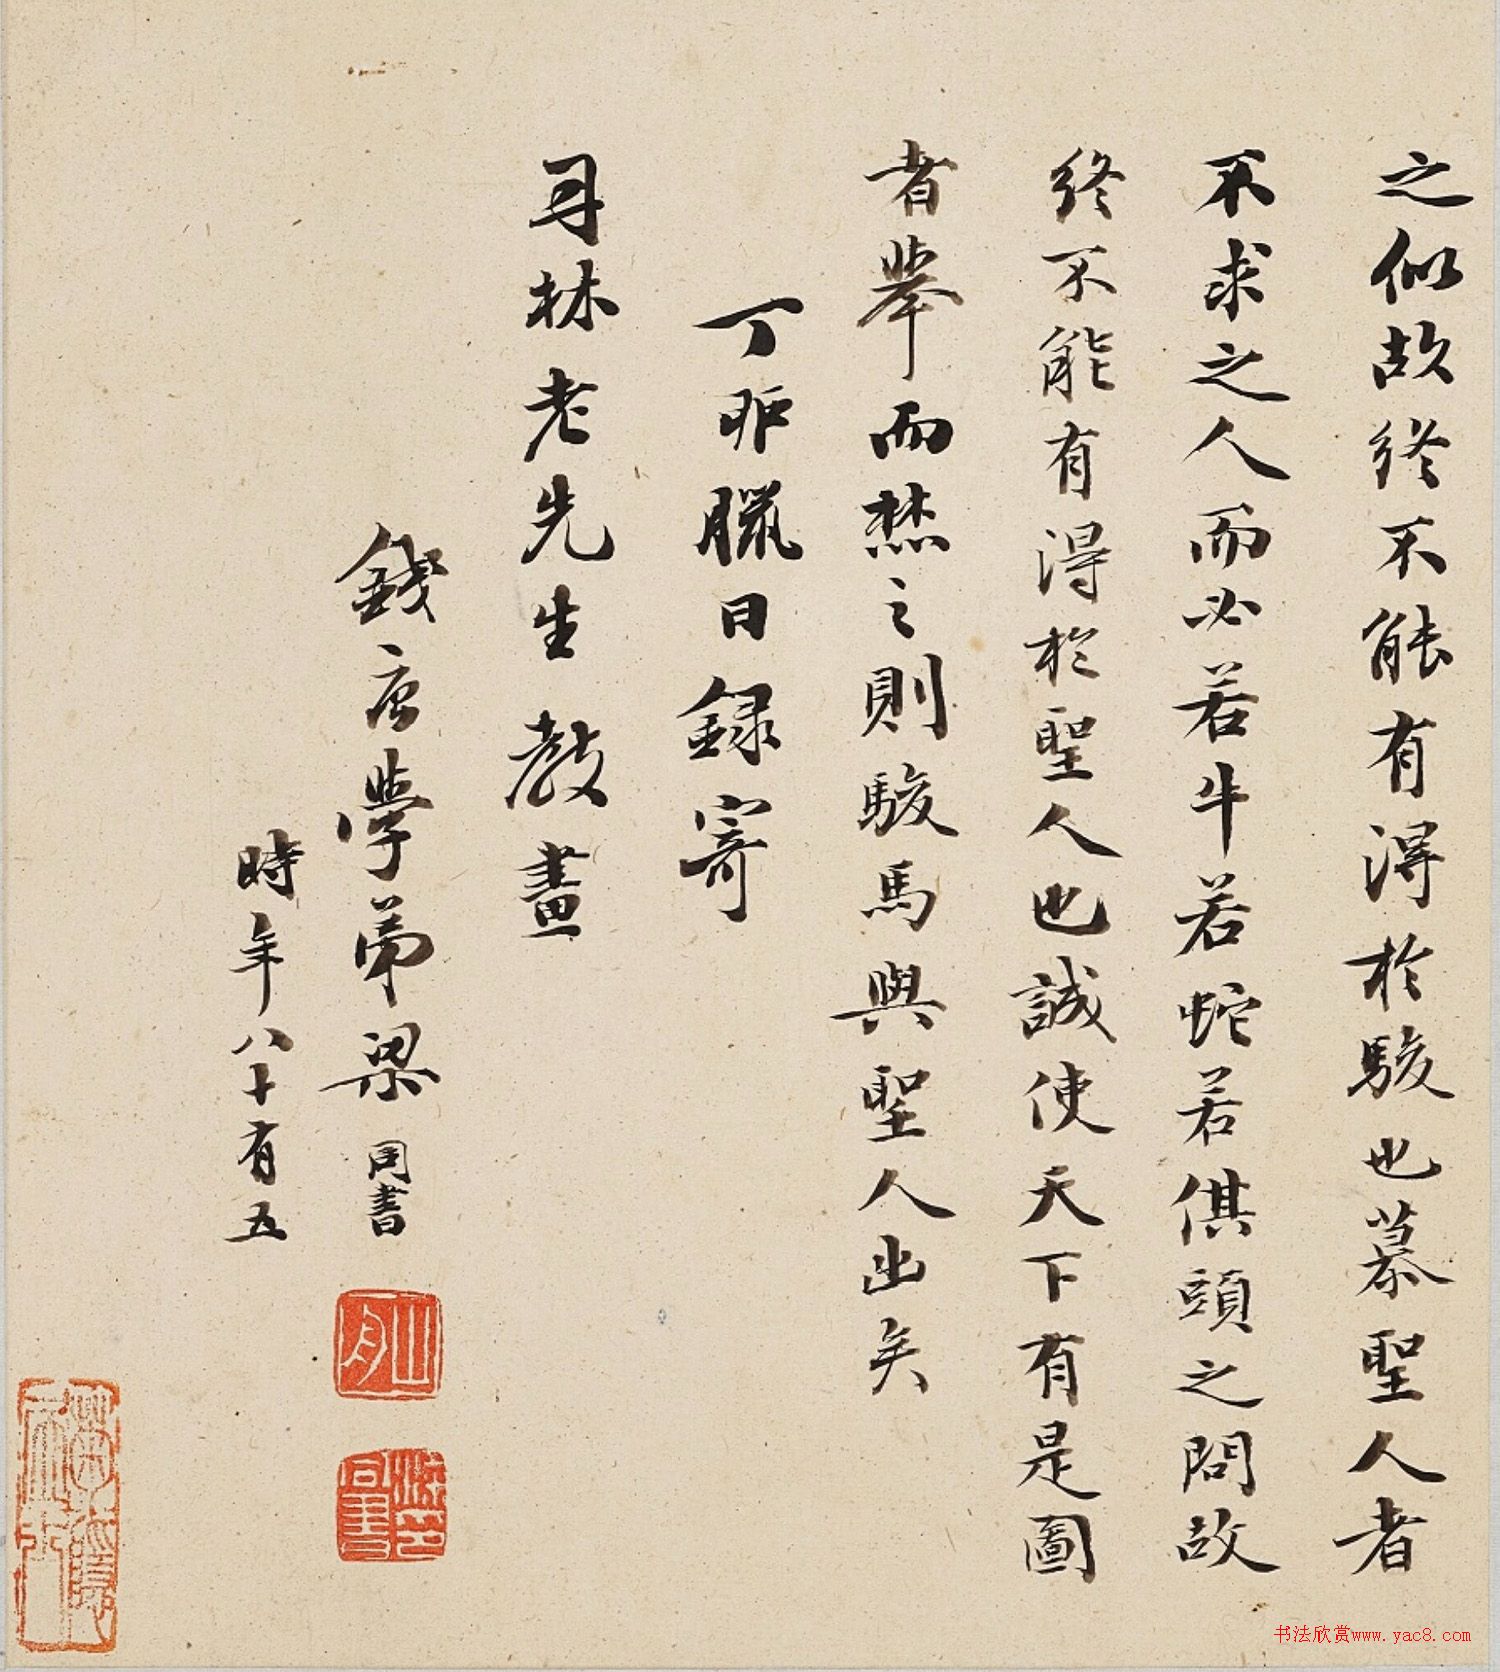 之似故終不能有得於駿也慕聖人者
不求之人而必若牛若蛇若倛頭之問故
終不能有得於聖人也誠使天下有是圖
者舉而焚之則駿馬與聖人出矣
丁卯臘日錄寄
林老先生教畫
錢唐學弟梁同書
時年八十有五
山舟
书法欣赏www.yac8.com